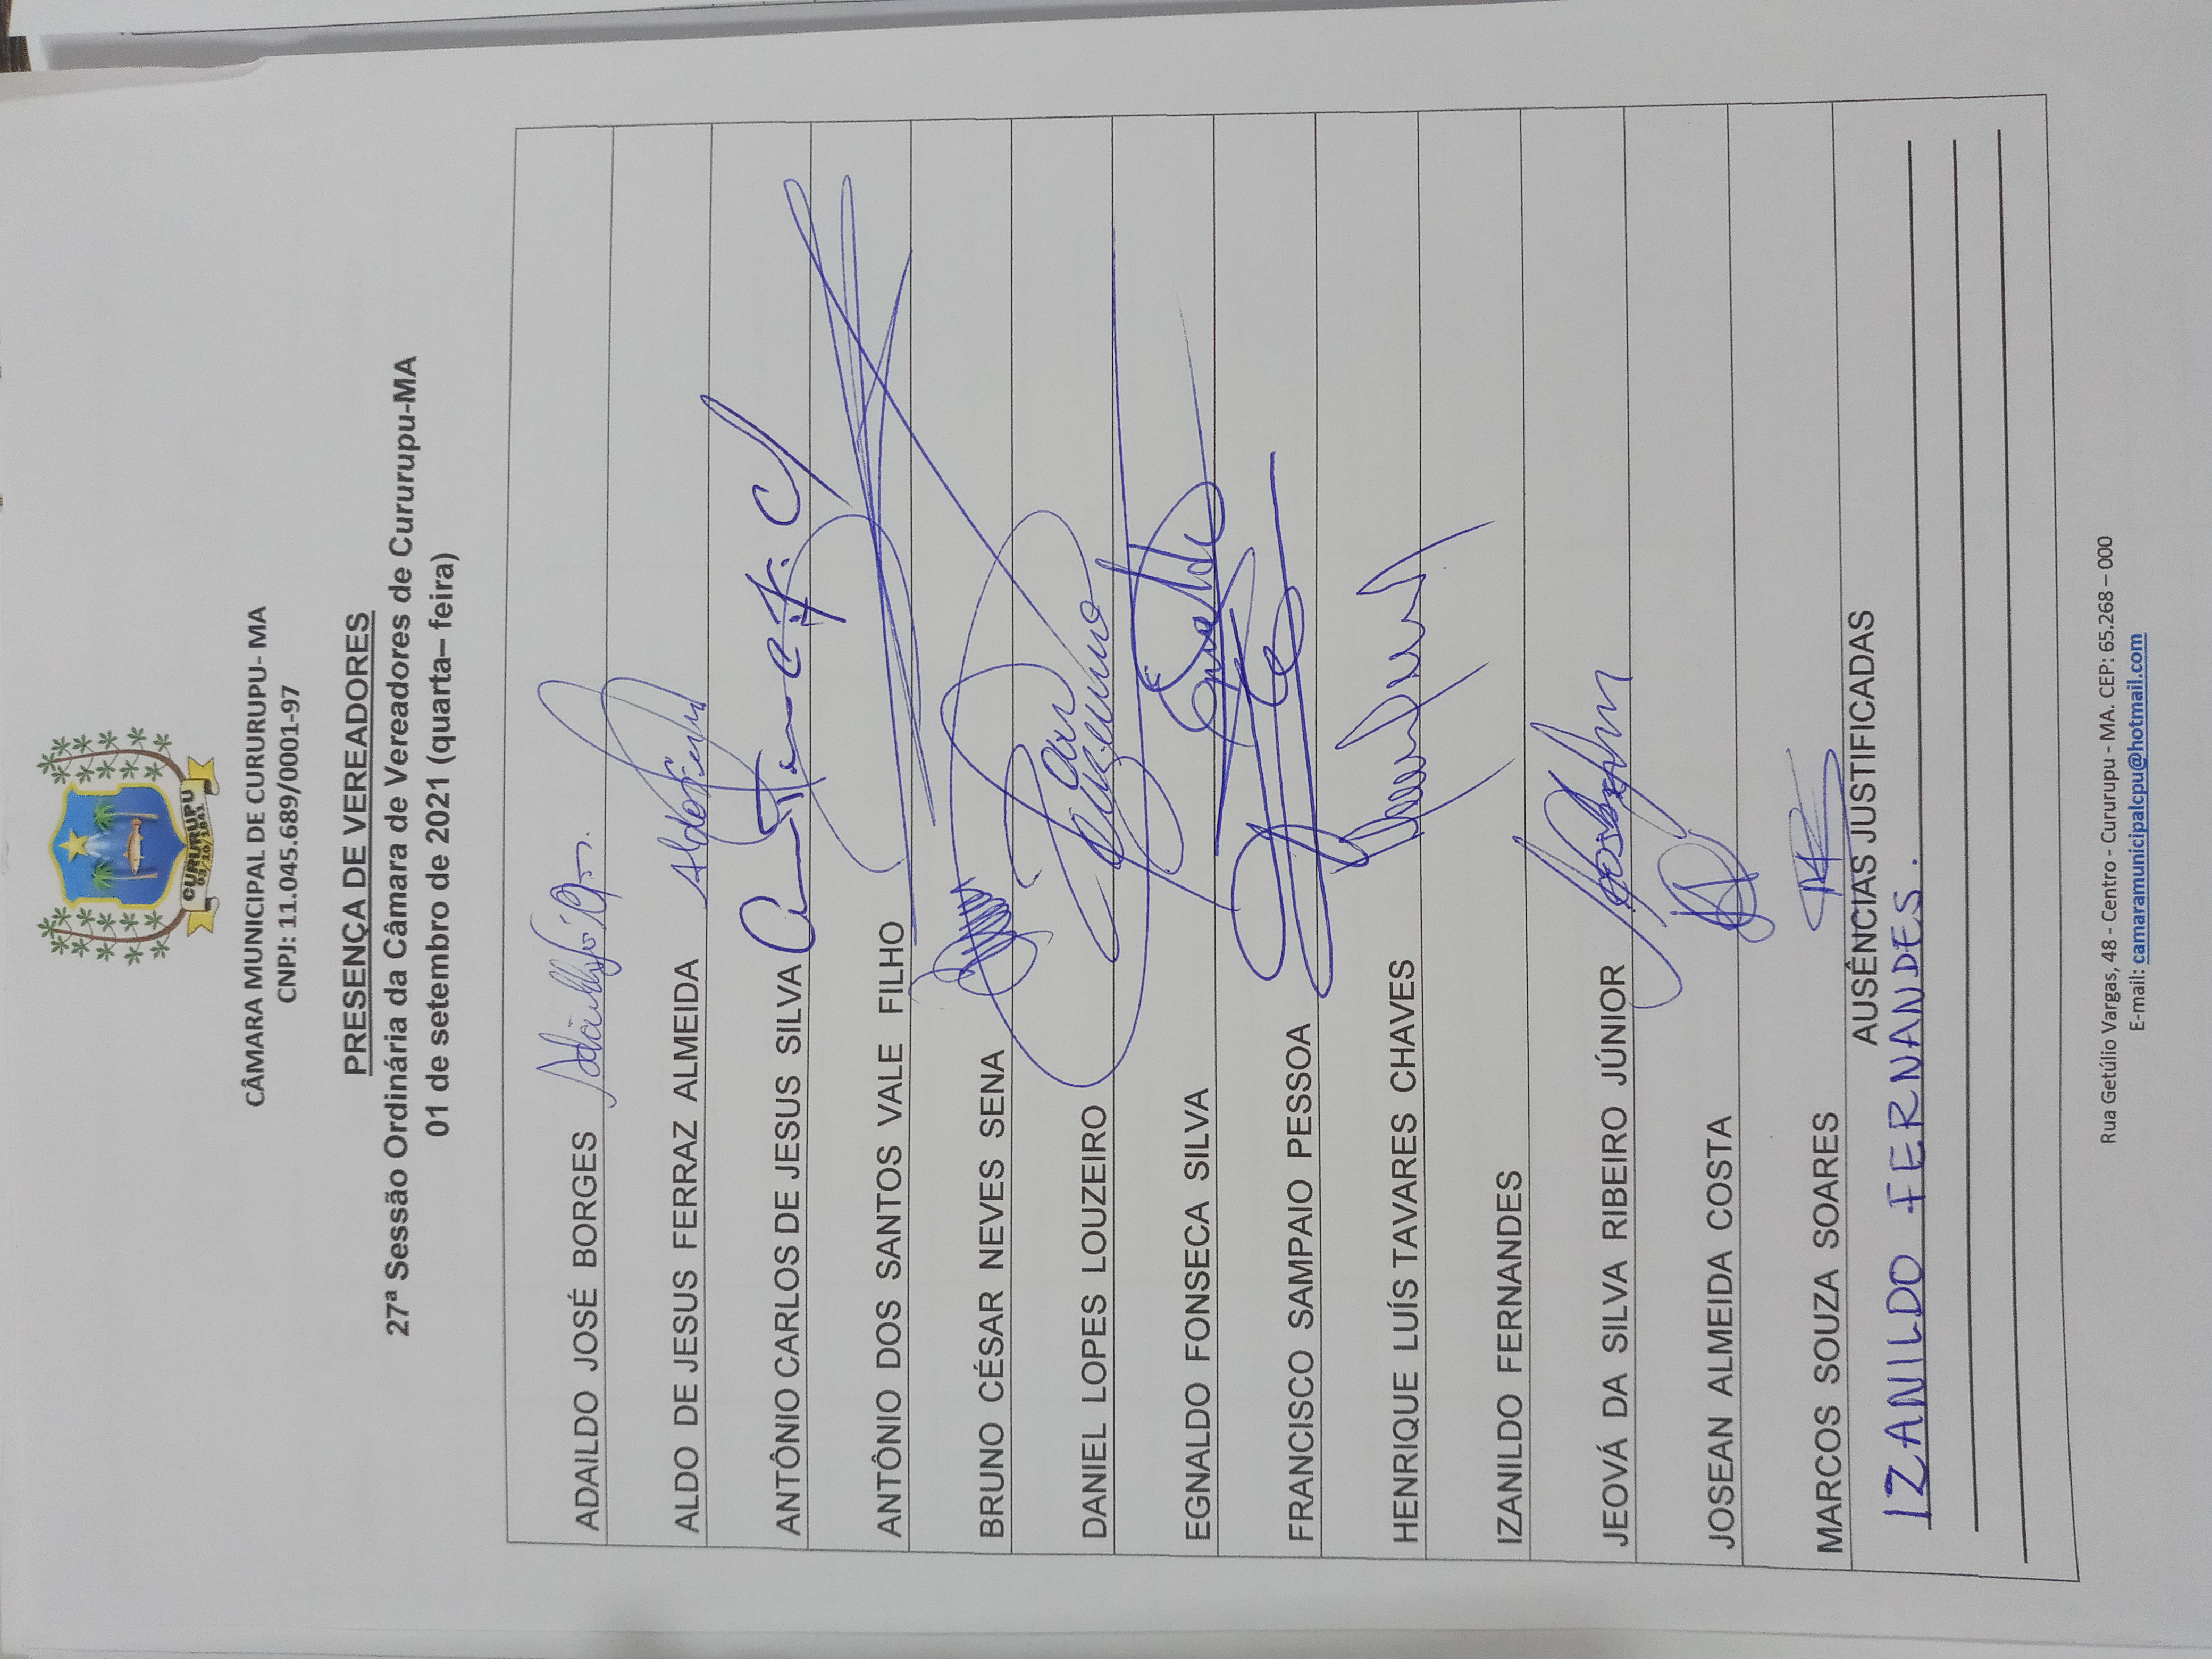 CURURUPU
03/10/1841
CÂMARA MUNICIPAL DE CURURUPU- MA
CNPJ: 11.045.689/0001-97
PRESENÇA DE VEREADORES
27ª Sessão Ordinária da Câmara de Vereadores de Cururupu-MA
01 de setembro de 2021 (quarta– feira)
ADAILDO JOSÉ BORGES
ALDO DE JESUS FERRAZ ALMEIDA
ANTÔNIO CARLOS DE JESUS SILVA
ANTÔNIO DOS SANTOS VALE FILHO
BRUNO CÉSAR NEVES SENA
DANIEL LOPES LOUZEIRO
EGNALDO FONSECA SILVA
FRANCISCO SAMPAIO PESSOA
HENRIQUE LUÍS TAVARES CHAVES
IZANILDO FERNANDES
JEOVÁ DA SILVA RIBEIRO JÚNIOR
JOSEAN ALMEIDA COSTA
MARCOS SOUZA SOARES
AUSÊNCIAS JUSTIFICADAS
IZANILDO FERNANDES.
Rua Getúlio Vargas, 48 - Centro - Cururupu - MA. CEP: 65.268 – 000
E-mail: camaramunicipalcpu@hotmail.com